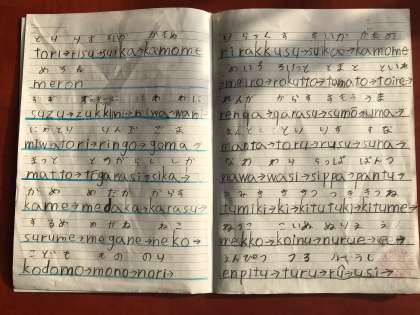 とり りす すいか かもめ
tori→risu→suika→kamome
めろん
meron
すず ずっきーに にわ わに
suzu→zukkini→niwa→wani
にわとり りんご ごま
niwatori→ringo→goma→
まっと とのがらし しか
matto→togarasi→sika→
かめ めだか からす
kame→medaka→karasu→
するめ めがね ねこ
surume→megane→neko→
こども もの のり
kodomo→mono→nori→
りらっくす すいか かもめ
rirakkusu→suika→kamome
めいろ ろけっと とまと といれ
meiro→rokutto→tomato→toire→
れんが からす すもう うま
renga→garasu→sumo→uma→
まんと とり りす すな
manta→toru→rusu→suna→
なわ わし らっぱ ぱんつ
nawa→wasi→sippa→pantu→
つみき き きつつき きつね
tumiki→ki→kitutuki→kitume→
めっこ こいぬ ぬりえ
mekko→koinu→nurue→
えんぴつ つる うし
enpitu→turu→rū→usi→